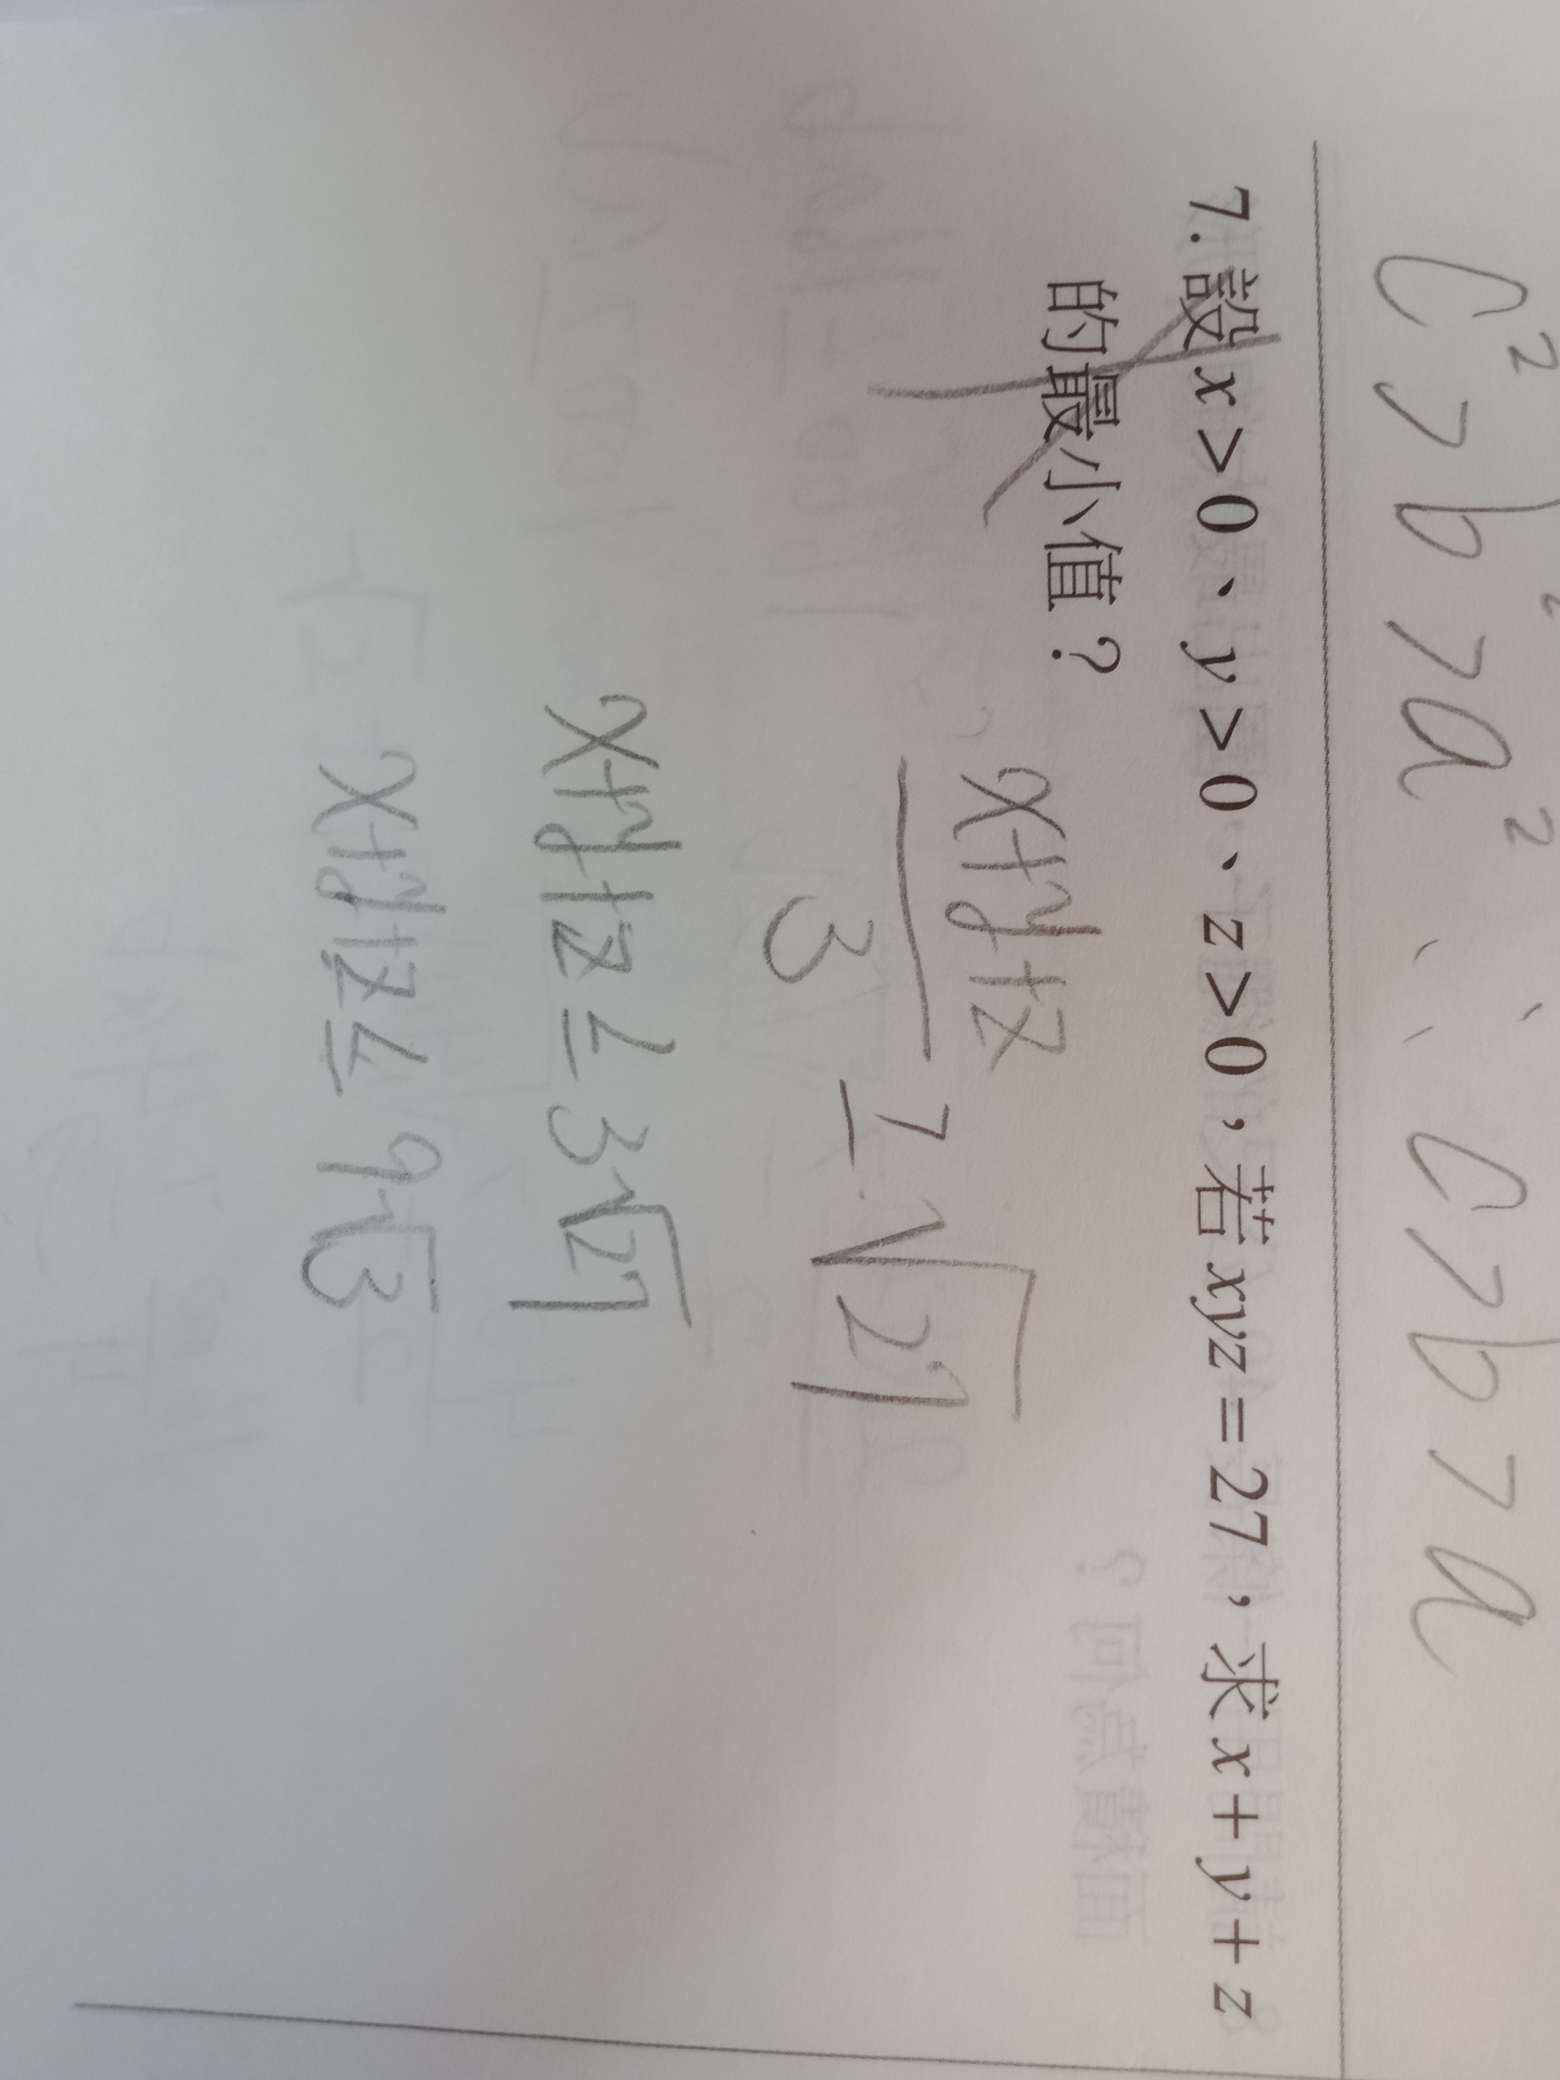 c² > b² > a² ∴ c > b > a
7. 設 x > 0、y > 0、z > 0，若 xyz = 27，求 x + y + z
的最小值？
x+y+z
3
≥ √27
x+y+z ≥ 3√27
x+y+z ≥ 9√3